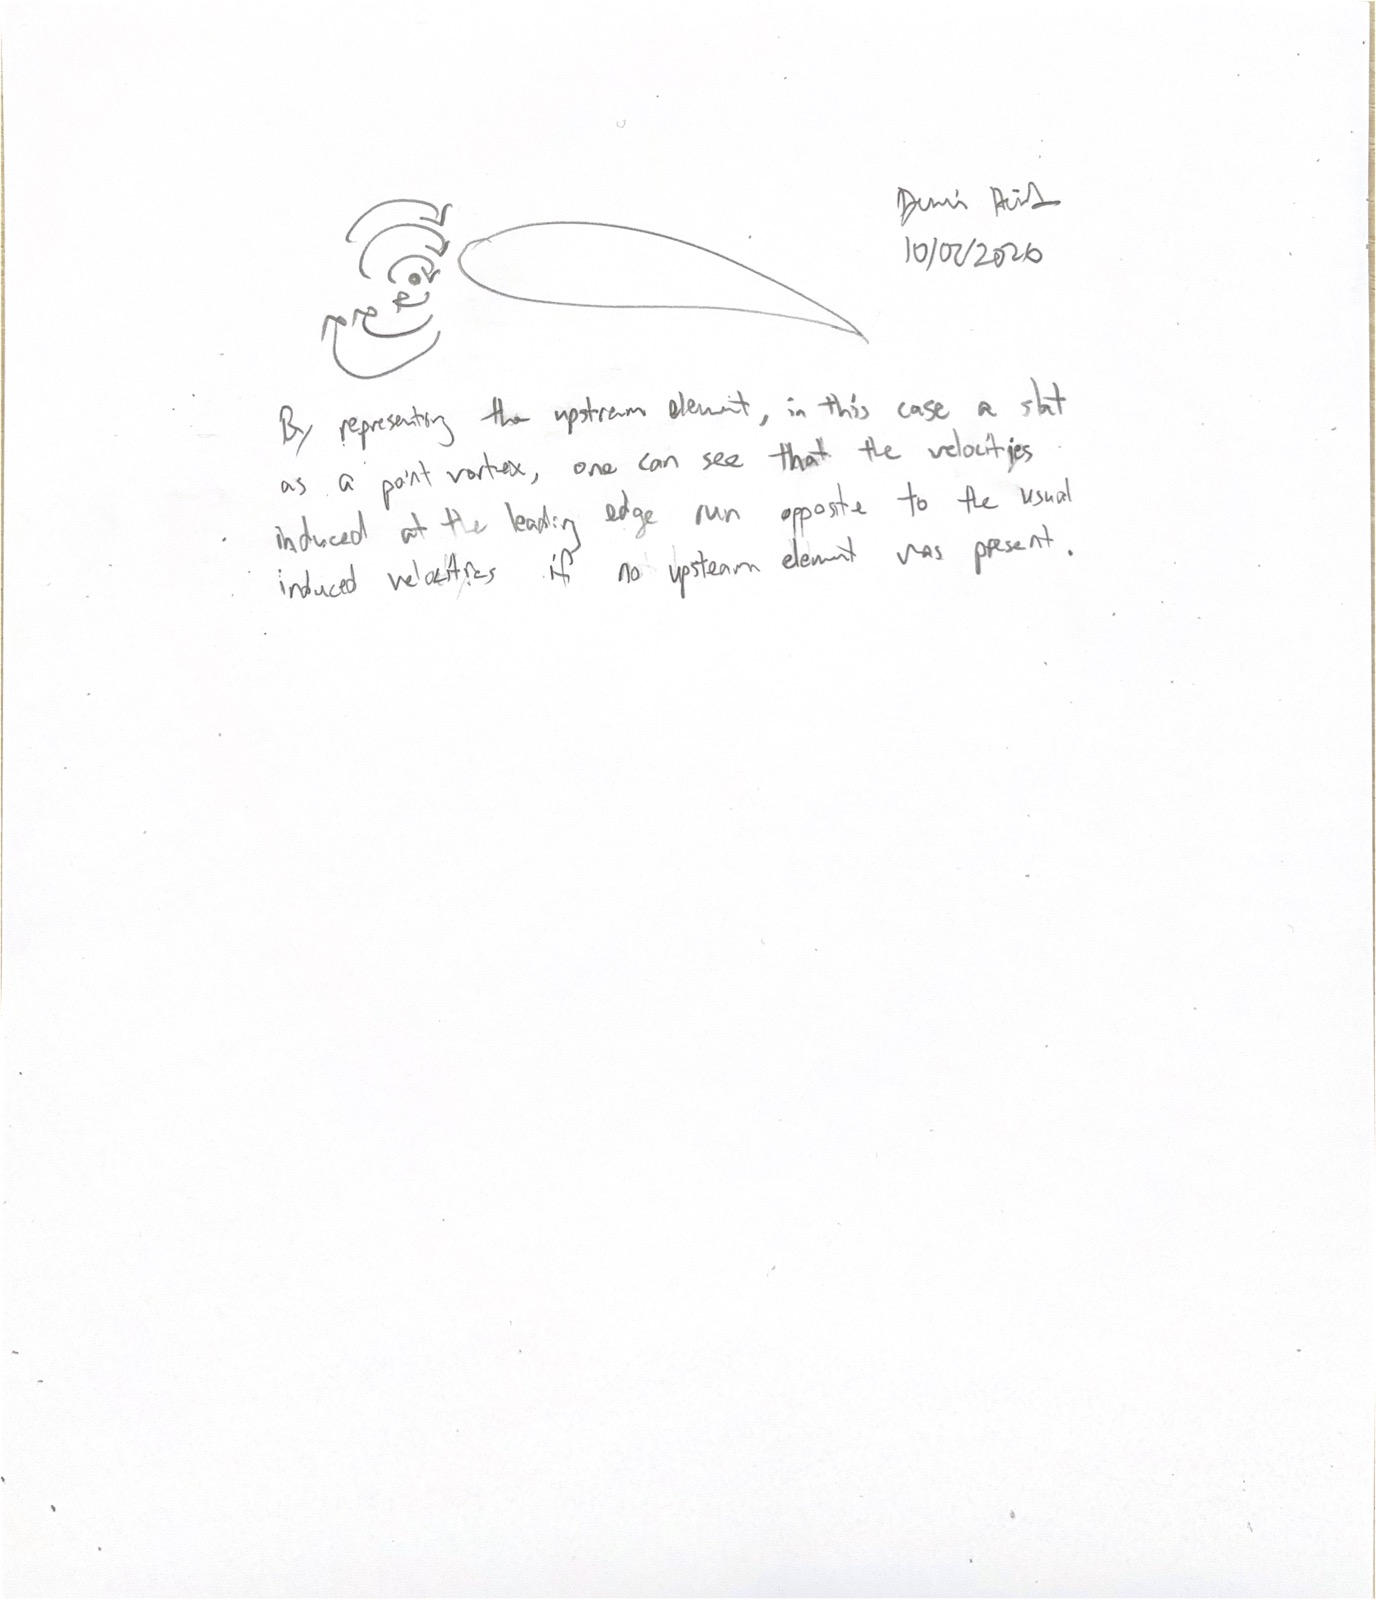 10/02/2020
By representing the upstream element, in this case a slat
as a point vortex, one can see that the velocities
induced at the leading edge run opposite to the usual
induced velocities if no upsteam element was present.